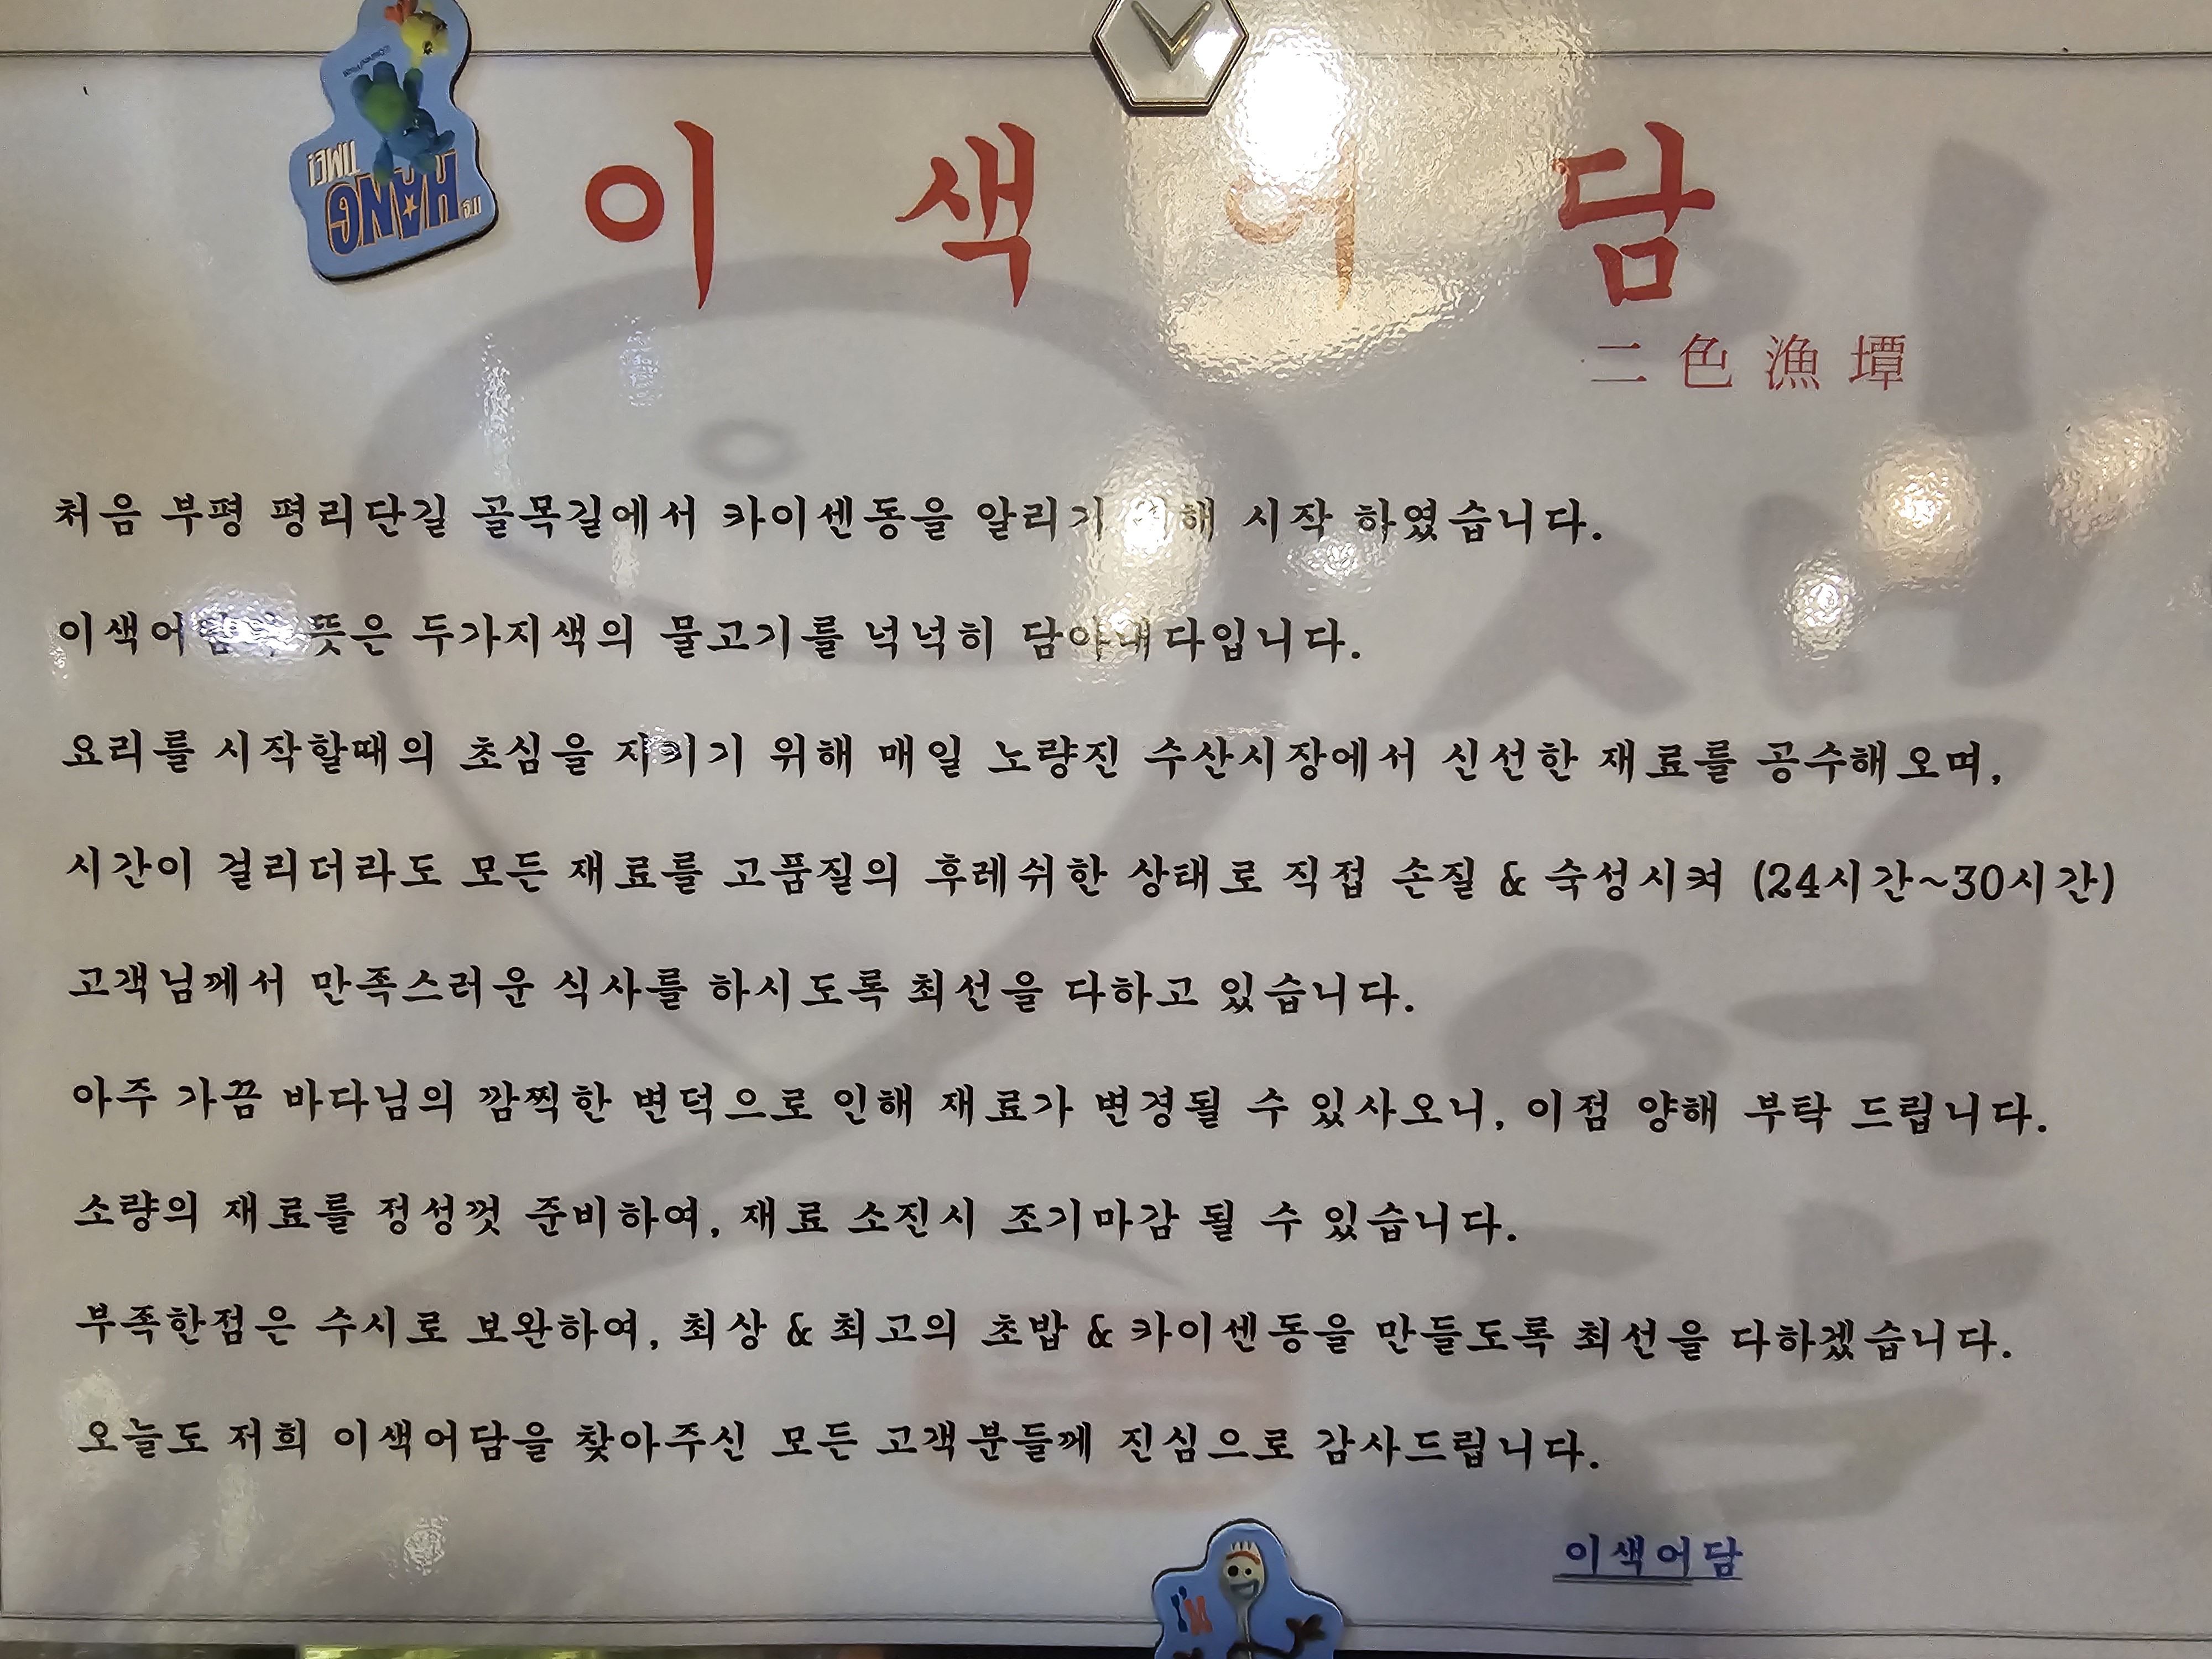 이색어담
二色漁墰
처음 부평 평리단길 골목길에서 카이센동을 알리기 위해 시작 하였습니다.
이색어담의 뜻은 두가지색의 물고기를 넉넉히 담아내다입니다.
요리를 시작할때의 초심을 지키기 위해 매일 노량진 수산시장에서 신선한 재료를 공수해오며,
시간이 걸리더라도 모든 재료를 고품질의 후레쉬한 상태로 직접 손질 & 숙성시켜 (24시간~30시간)
고객님께서 만족스러운 식사를 하시도록 최선을 다하고 있습니다.
아주 가끔 바다님의 깜찍한 변덕으로 인해 재료가 변경될 수 있사오니, 이점 양해 부탁 드립니다.
소량의 재료를 정성껏 준비하여, 재료 소진시 조기마감 될 수 있습니다.
부족한점은 수시로 보완하여, 최상 & 최고의 초밥 & 카이센동을 만들도록 최선을 다하겠습니다.
오늘도 저희 이색어담을 찾아주신 모든 고객분들께 진심으로 감사드립니다.
이색어담
IT'S HANG TIME!
I'M
이색어담